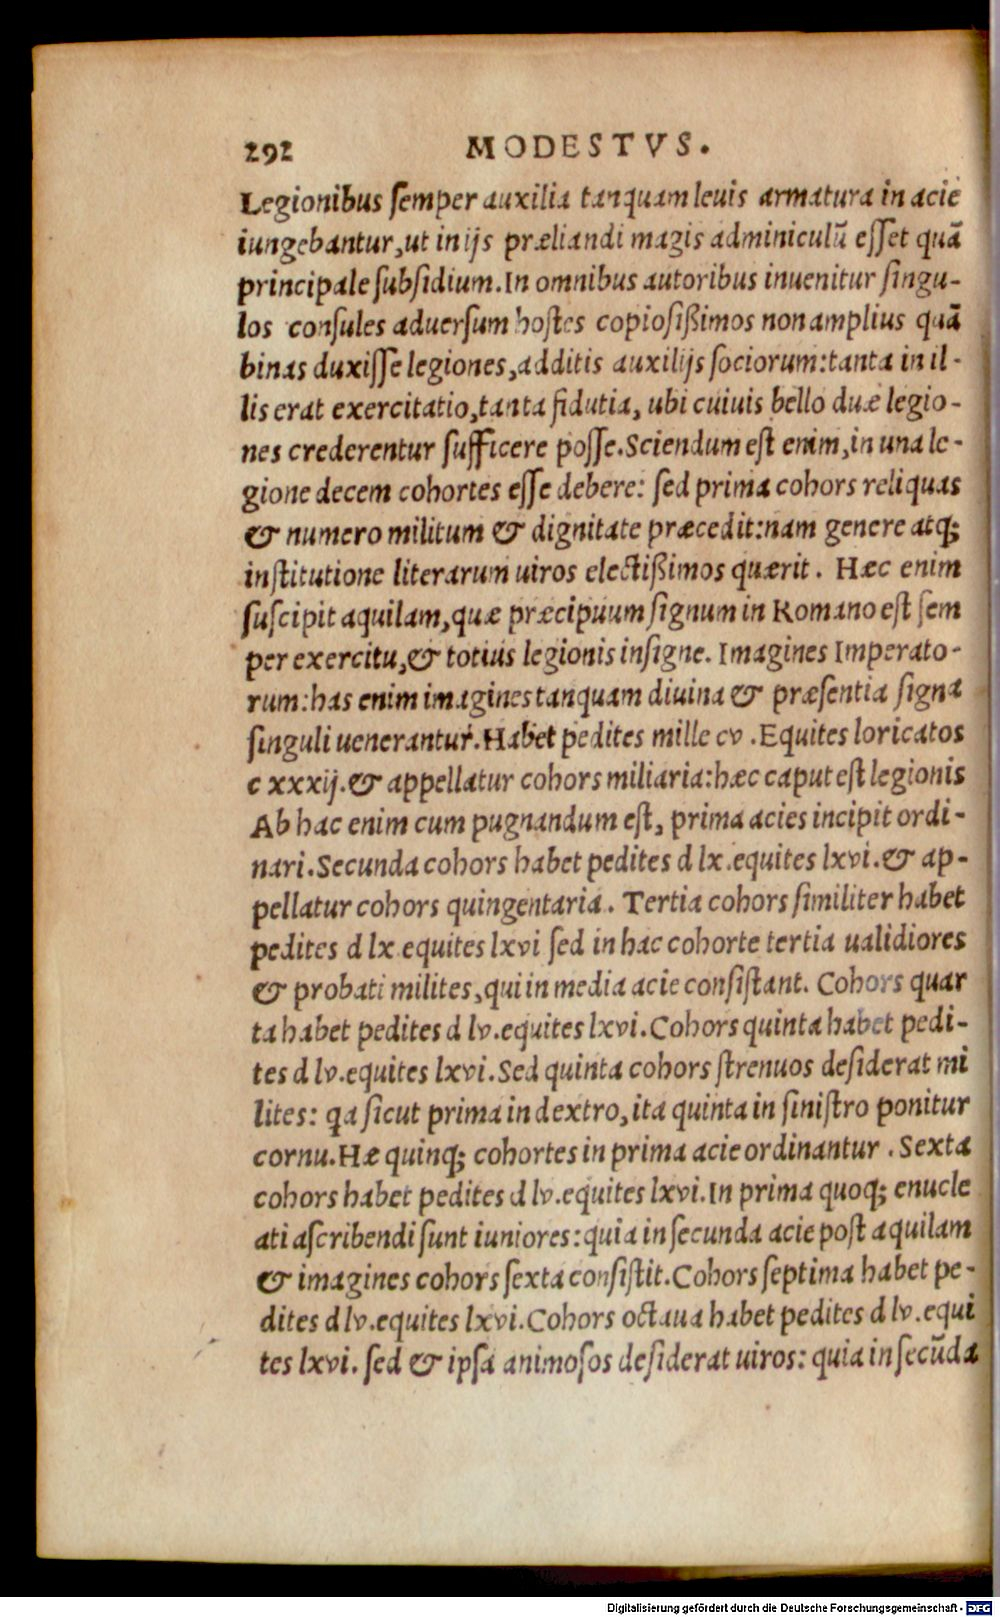 292 MODESTVS.
Legionibus ſemper auxilia tanquam leuis armatura in acie
iungebantur, ut in ijs præliandi magis adminiculũ eſſet quã
principale ſubſidium. In omnibus autoribus inuenitur ſingu-
los conſules aduerſum hoſtes copioſißimos non amplius quã
binas duxiſſe legiones, additis auxilijs ſociorum: tanta in il-
lis erat exercitatio, tanta fidutia, ubi cuiuis bello duæ legio-
nes crederentur ſufficere poſſe. Sciendum eſt enim, in una le-
gione decem cohortes eſſe debere: ſed prima cohors reliquas
& numero militum & dignitate præcedit: nam genere atq;
inſtitutione literarum uiros electißimos quærit. Hæc enim
ſuſcipit aquilam, quæ præcipuum ſignum in Romano eſt ſem
per exercitu, & totius legionis inſigne. Imagines Imperato-
rum: has enim imagines tanquam diuina & præſentia ſigna
ſinguli uenerantur. Habet pedites mille cv. Equites loricatos
c xxxij. & appellatur cohors miliaria: hæc caput eſt legionis
Ab hac enim cum pugnandum eſt, prima acies incipit ordi-
nari. Secunda cohors habet pedites d lx. equites lxvi. & ap-
pellatur cohors quingentaria. Tertia cohors ſimiliter habet
pedites d lx equites lxvi ſed in hac cohorte tertia ualidiores
& probati milites, qui in media acie conſiſtant. Cohors quar
ta habet pedites d lv. equites lxvi. Cohors quinta habet pedi-
tes d lv. equites lxvi. Sed quinta cohors ſtrenuos deſiderat mi
lites: qa ſicut prima in dextro, ita quinta in ſiniſtro ponitur
cornu. Hæ quinq; cohortes in prima acie ordinantur. Sexta
cohors habet pedites d lv. equites lxvi. In prima quoq; enucle
ati aſcribendi ſunt iuniores: quia in ſecunda acie poſt aquilam
& imagines cohors ſexta conſiſtit. Cohors ſeptima habet pe-
dites d lv. equites lxvi. Cohors octaua habet pedites d lv. equi
tes lxvi. ſed & ipſa animoſos deſiderat uiros: quia in ſecũda
Digitalisierung gefördert durch die Deutsche Forschungsgemeinschaft - DFG